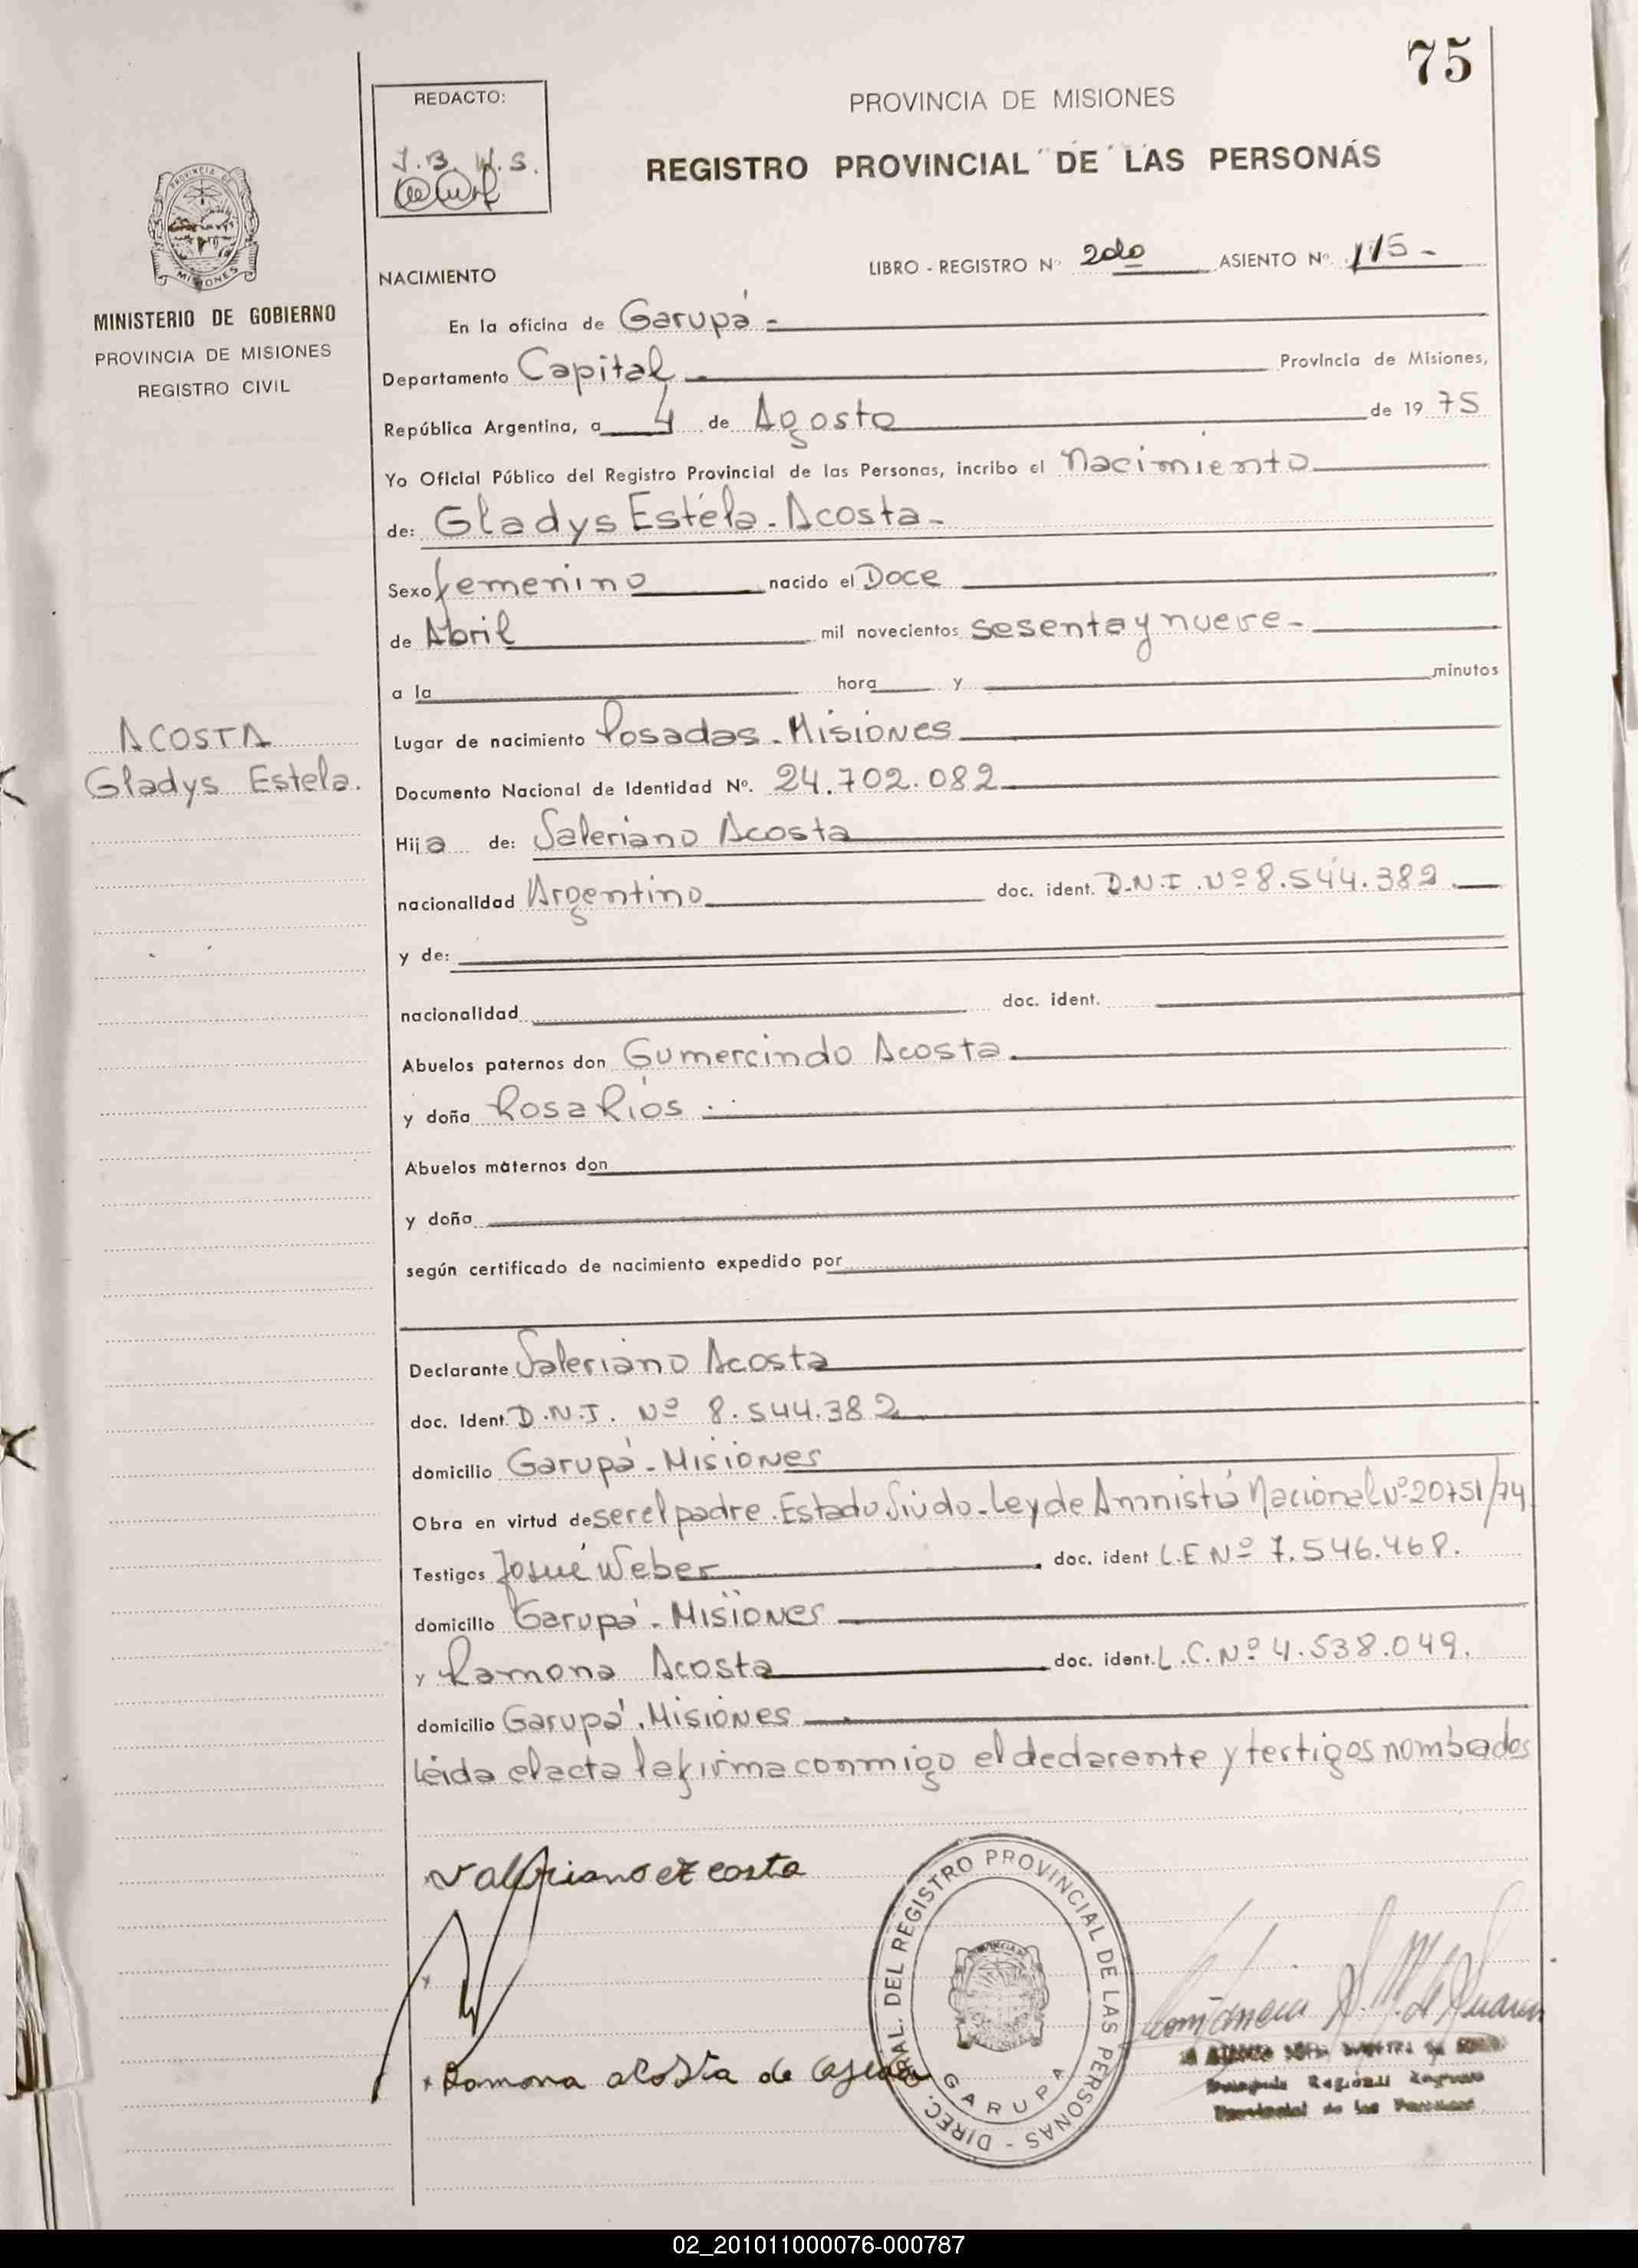 75
REDACTO:
J.B. W.S.
PROVINCIA DE MISIONES
REGISTRO PROVINCIAL DE LAS PERSONAS
MISIONES
MINISTERIO DE GOBIERNO
PROVINCIA DE MISIONES
REGISTRO CIVIL
NACIMIENTO
LIBRO - REGISTRO Nº 2do ASIENTO Nº 115 -
En la oficina de Garupá -
Departamento Capital - Provincia de Misiones,
República Argentina, a 4 de Agosto de 1975
Yo Oficial Público del Registro Provincial de las Personas, incribo el Nacimiento
de: Gladys Estela - Acosta -
Sexo femenino nacido el Doce
de Abril mil novecientos sesenta y nueve -
a la hora y minutos
ACOSTA
Gladys Estela.
Lugar de nacimiento Posadas - Misiones
Documento Nacional de Identidad Nº. 24.702.082
Hija de: Valeriano Acosta
nacionalidad Argentino doc. ident. D.N.I. Nº 8.544.382.
y de:
nacionalidad doc. ident.
Abuelos paternos don Gumercindo Acosta.
y doña Rosa Ríos.
Abuelos maternos don
y doña
según certificado de nacimiento expedido por
Declarante Valeriano Acosta
doc. Ident. D.N.I. Nº 8.544.382
domicilio Garupá - Misiones
Obra en virtud de ser el padre. Estado Viudo - Ley de Amnistía Nacional Nº 20751/74
Testigos Josué Weber doc. ident L.E Nº 7.546.468.
domicilio Garupá - Misiones
y Ramona Acosta doc. ident. L.C. Nº 4.538.049.
domicilio Garupá. Misiones
Leída el acta la firma conmigo el declarante y testigos nombados
Valeriano acosta
Ramona acosta de
DIREC. GRAL. DEL REGISTRO PROVINCIAL DE LAS PERSONAS -
GARUPA
Delegada Regional Registro
Provincial de las Personas
02_201011000076-000787